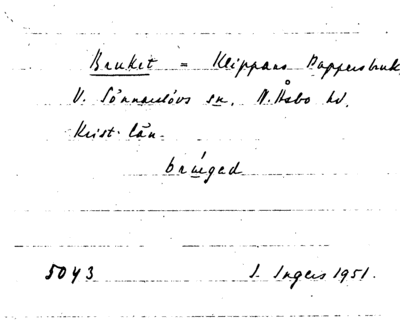 Bruket = Klippans Pappersbruk,
V. Sönnarslövs sn. N. Åsbo hd.
Krist. län.
brúged
5043 I. Ingers 1951.